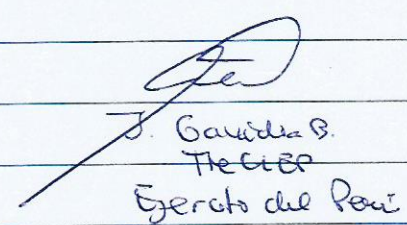 J. Gavidia B.
Tte Cl EP
Ejercito del Perú